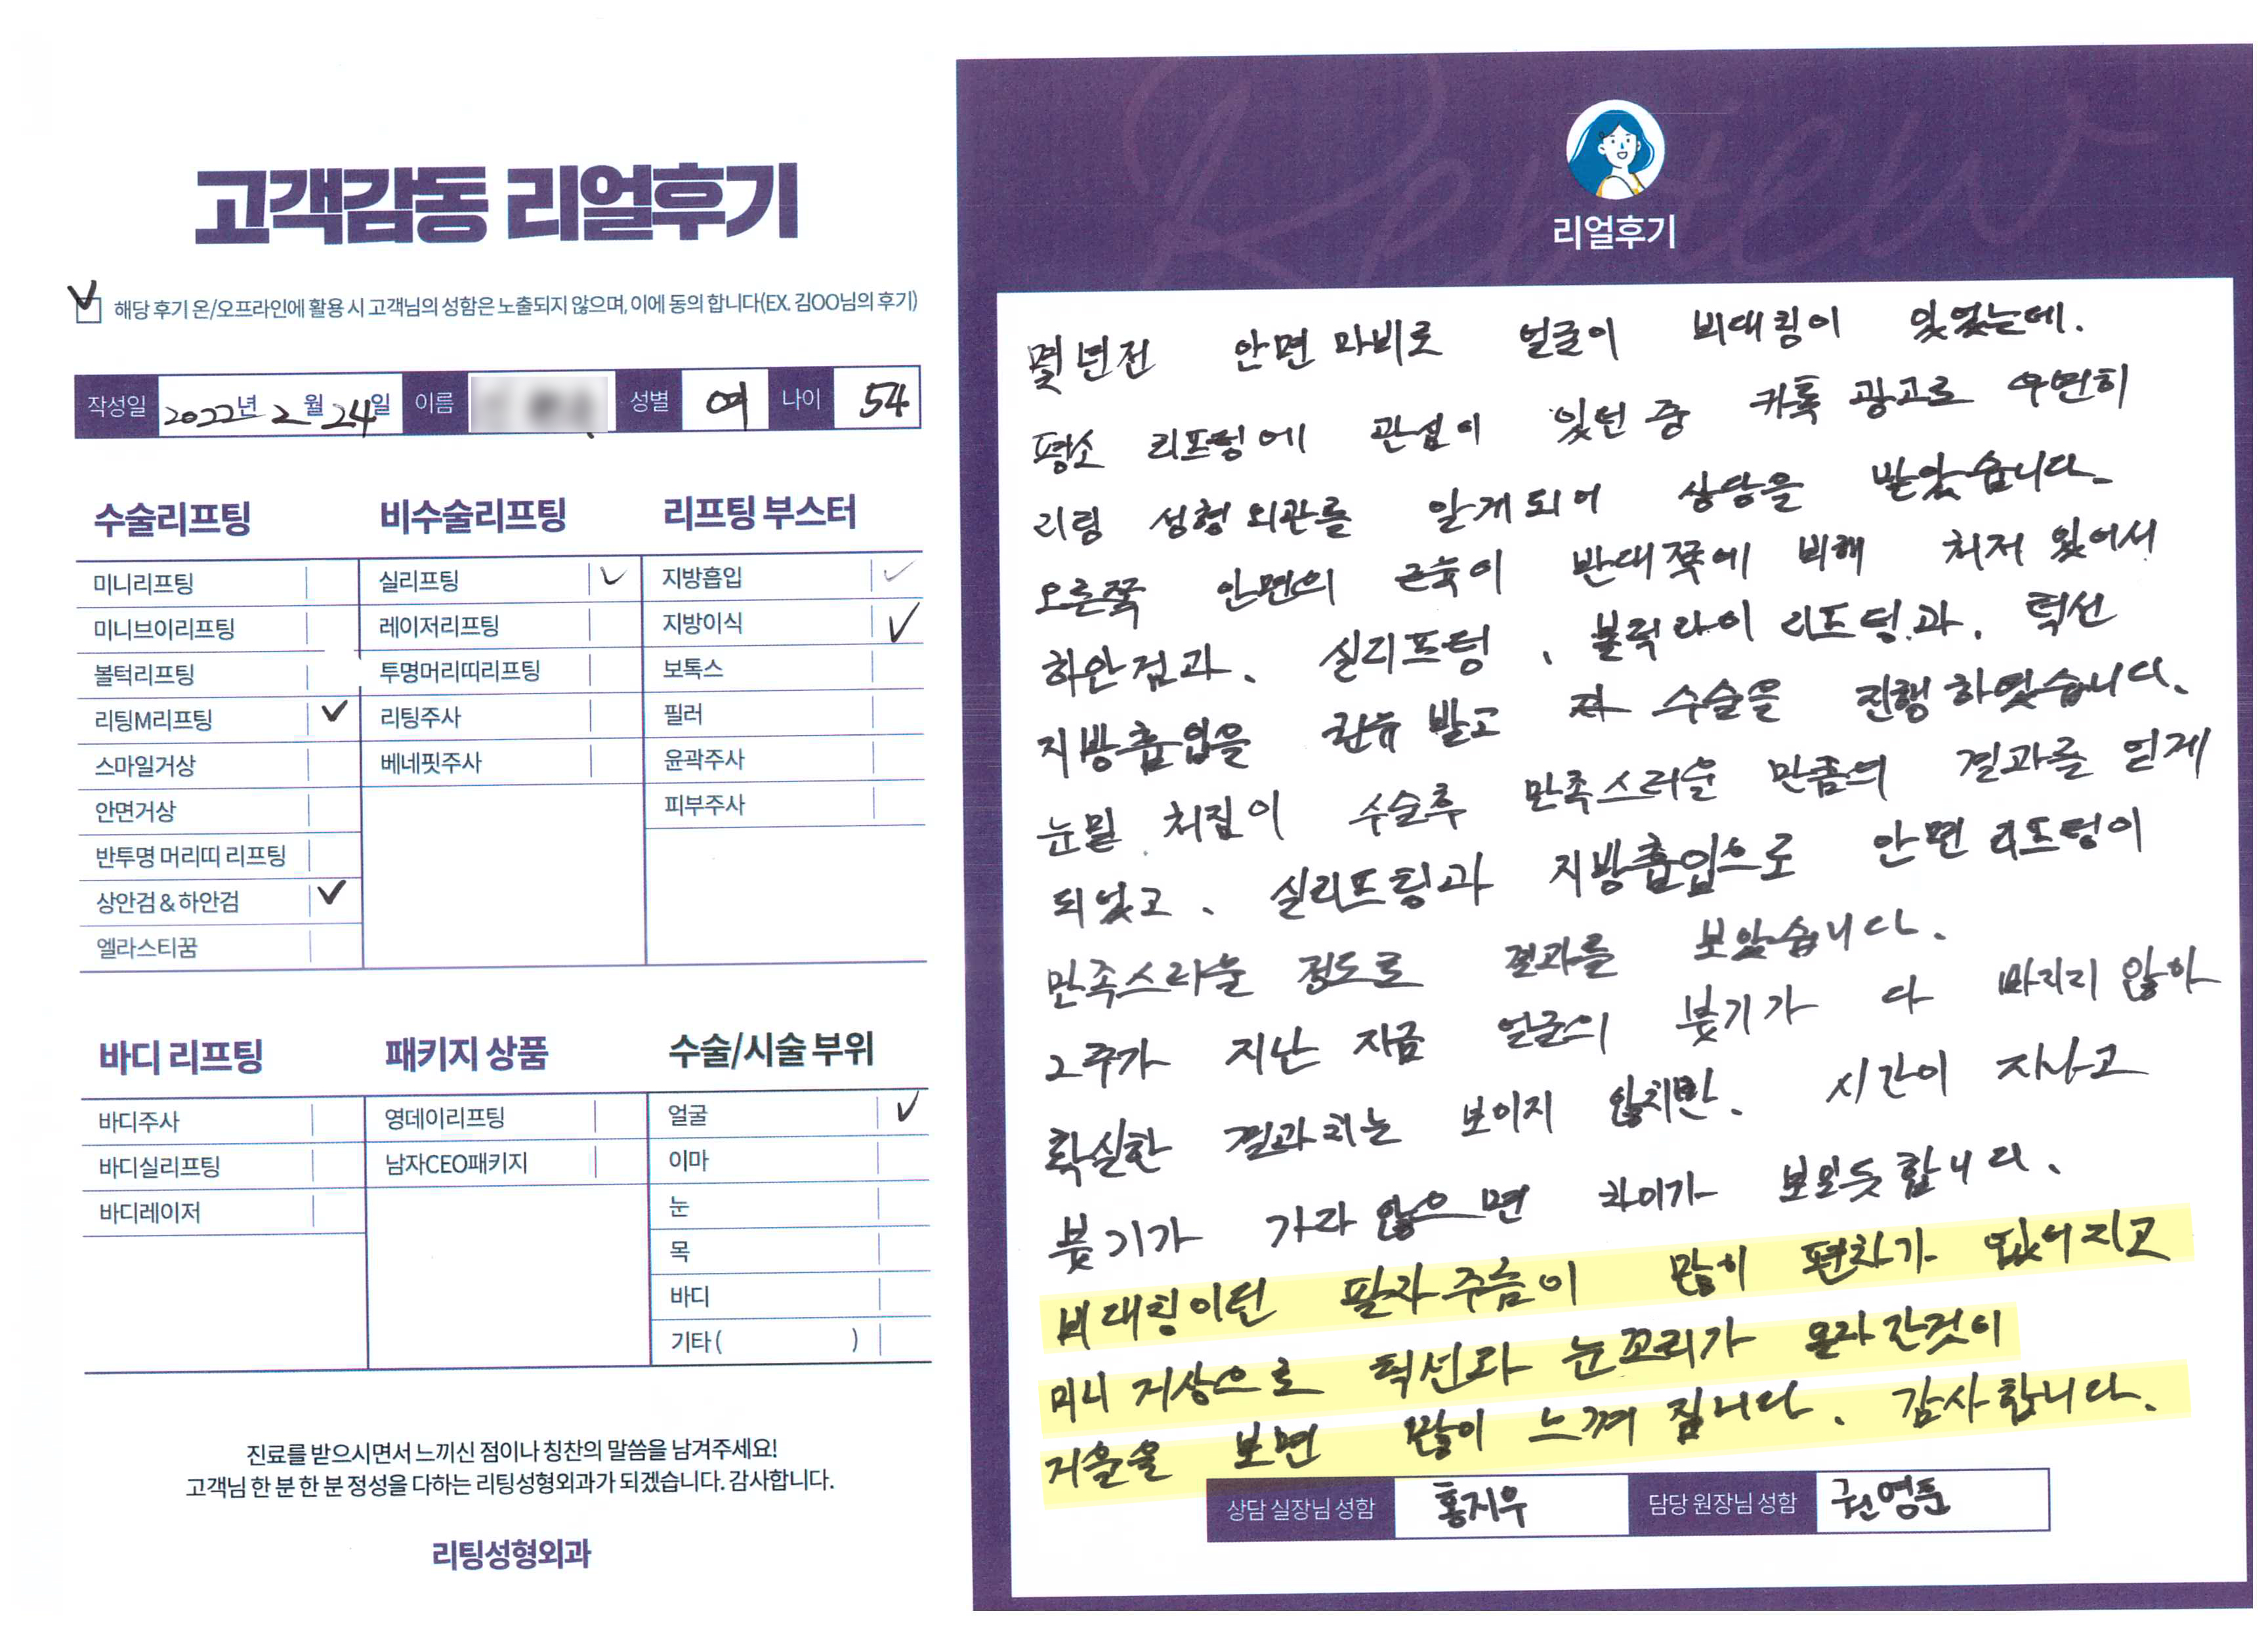 고객감동 리얼후기
해당 후기 온/오프라인에 활용 시 고객님의 성함은 노출되지 않으며, 이에 동의 합니다(EX. 김OO님의 후기)
작성일 2022년 2월 24일 이름 성별 여 나이 54
수술리프팅
미니리프팅
미니브이리프팅
볼턱리프팅
리팅M리프팅
스마일거상
안면거상
반투명 머리띠 리프팅
상안검 & 하안검
엘라스티꿈
비수술리프팅
실리프팅
레이저리프팅
투명머리띠리프팅
리팅주사
베네핏주사
리프팅 부스터
지방흡입
지방이식
보톡스
필러
윤곽주사
피부주사
바디 리프팅
바디주사
바디실리프팅
바디레이저
패키지 상품
영데이리프팅
남자CEO패키지
수술/시술 부위
얼굴
이마
눈
목
바디
기타 ( )
진료를 받으시면서 느끼신 점이나 칭찬의 말씀을 남겨주세요!
고객님 한 분 한 분 정성을 다하는 리팅성형외과가 되겠습니다. 감사합니다.
리팅성형외과
Review
리얼후기
몇년전 안면마비로 얼굴이 비대칭이 있었는데.
평소 리프팅에 관심이 있던 중 카톡 광고로 우연히
리팅 성형외관를 알게되어 상담을 받았습니다.
오른쪽 안면의 근육이 반대쪽에 비해 처저 있어서
하안검과, 실리프팅, 블럭라이 리프팅과, 턱선
지방흡입을 권유 받고 수술을 진행하였습니다.
눈밑 처짐이 수술후 만족스러운 만큼의 결과를 얻게
되었고, 실리프팅과 지방흡입으로 안면 리프팅이
만족스러운 정도로 결과를 보았습니다.
2주가 지난 지금 얼굴의 붓기가 다 빠지지 않아
확실한 결과치는 보이지 않지만, 시간이 지나고
붓기가 가라 않으면 차이가 보일듯 합니다.
비대칭이던 팔자주름이 많이 편차가 없어지고
미니거상으로 턱선과 눈꼬리가 올라간것이
거울을 보면 많이 느껴 집니다. 감사합니다.
상담 실장님 성함 홍지우 담당 원장님 성함 권영준